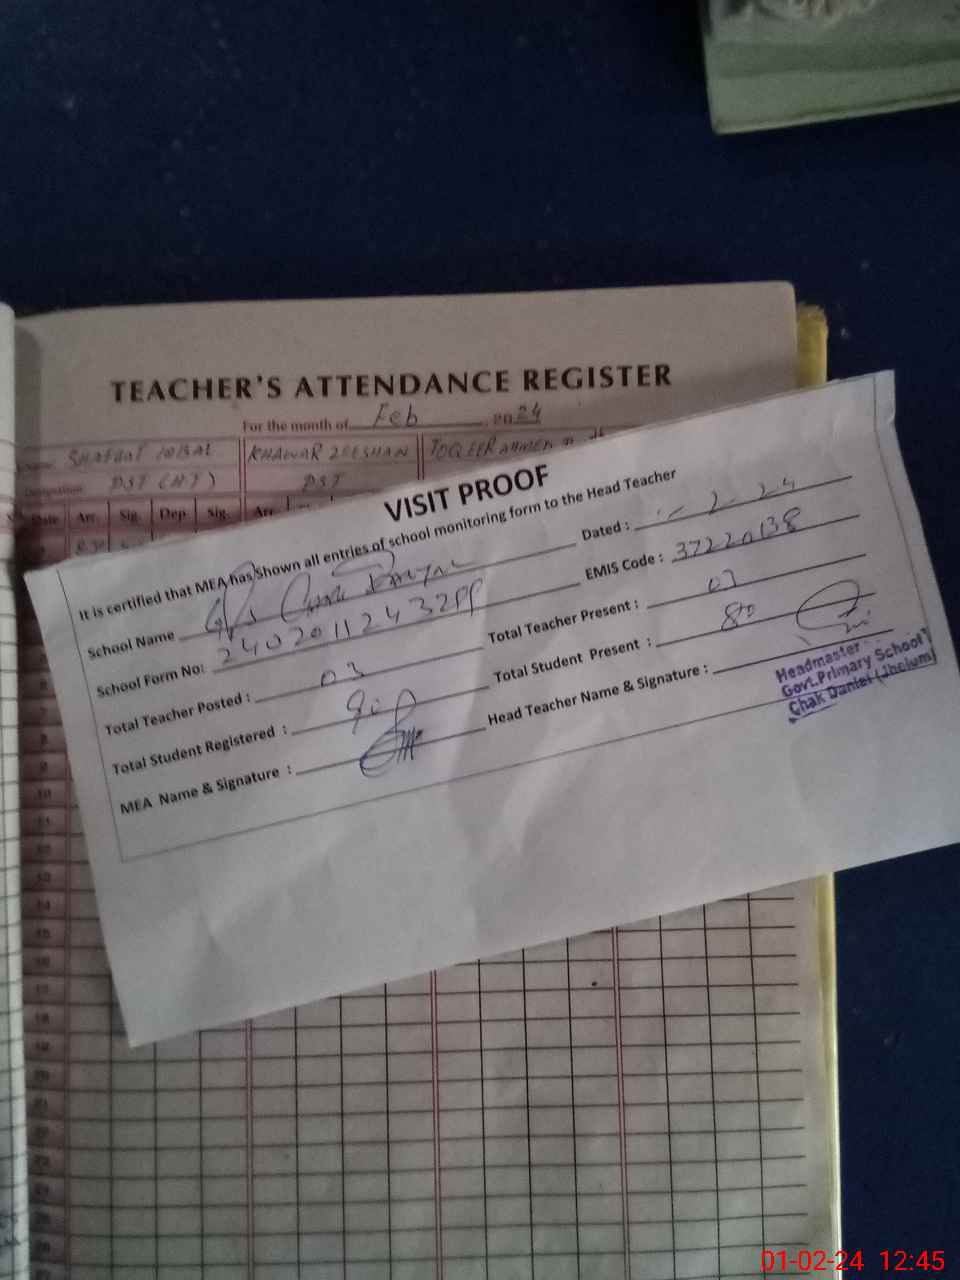 TEACHER'S ATTENDANCE REGISTER
For the month of Feb 2024
Name SHAFQAT IQBAL KHAWAR ZEESHAN TOQEER AHMED
Designation PST (HT) PST
Date Arr. Sig. Dep. Sig. Arr.
VISIT PROOF
It is certified that MEA has shown all entries of school monitoring form to the Head Teacher
School Name GPS Chak Daniyal Dated : 1-2-24
School Form No: 24020112432PP EMIS Code : 37220138
Total Teacher Posted : 03 Total Teacher Present : 03
Total Student Registered : 90 Total Student Present : 80
MEA Name & Signature : Head Teacher Name & Signature :
Headmaster
Govt. Primary School
Chak Daniel (Jhelum)
7
8
9
10
11
12
13
14
15
16
17
18
19
20
21
22
23
24
25
26
01-02-24 12:45